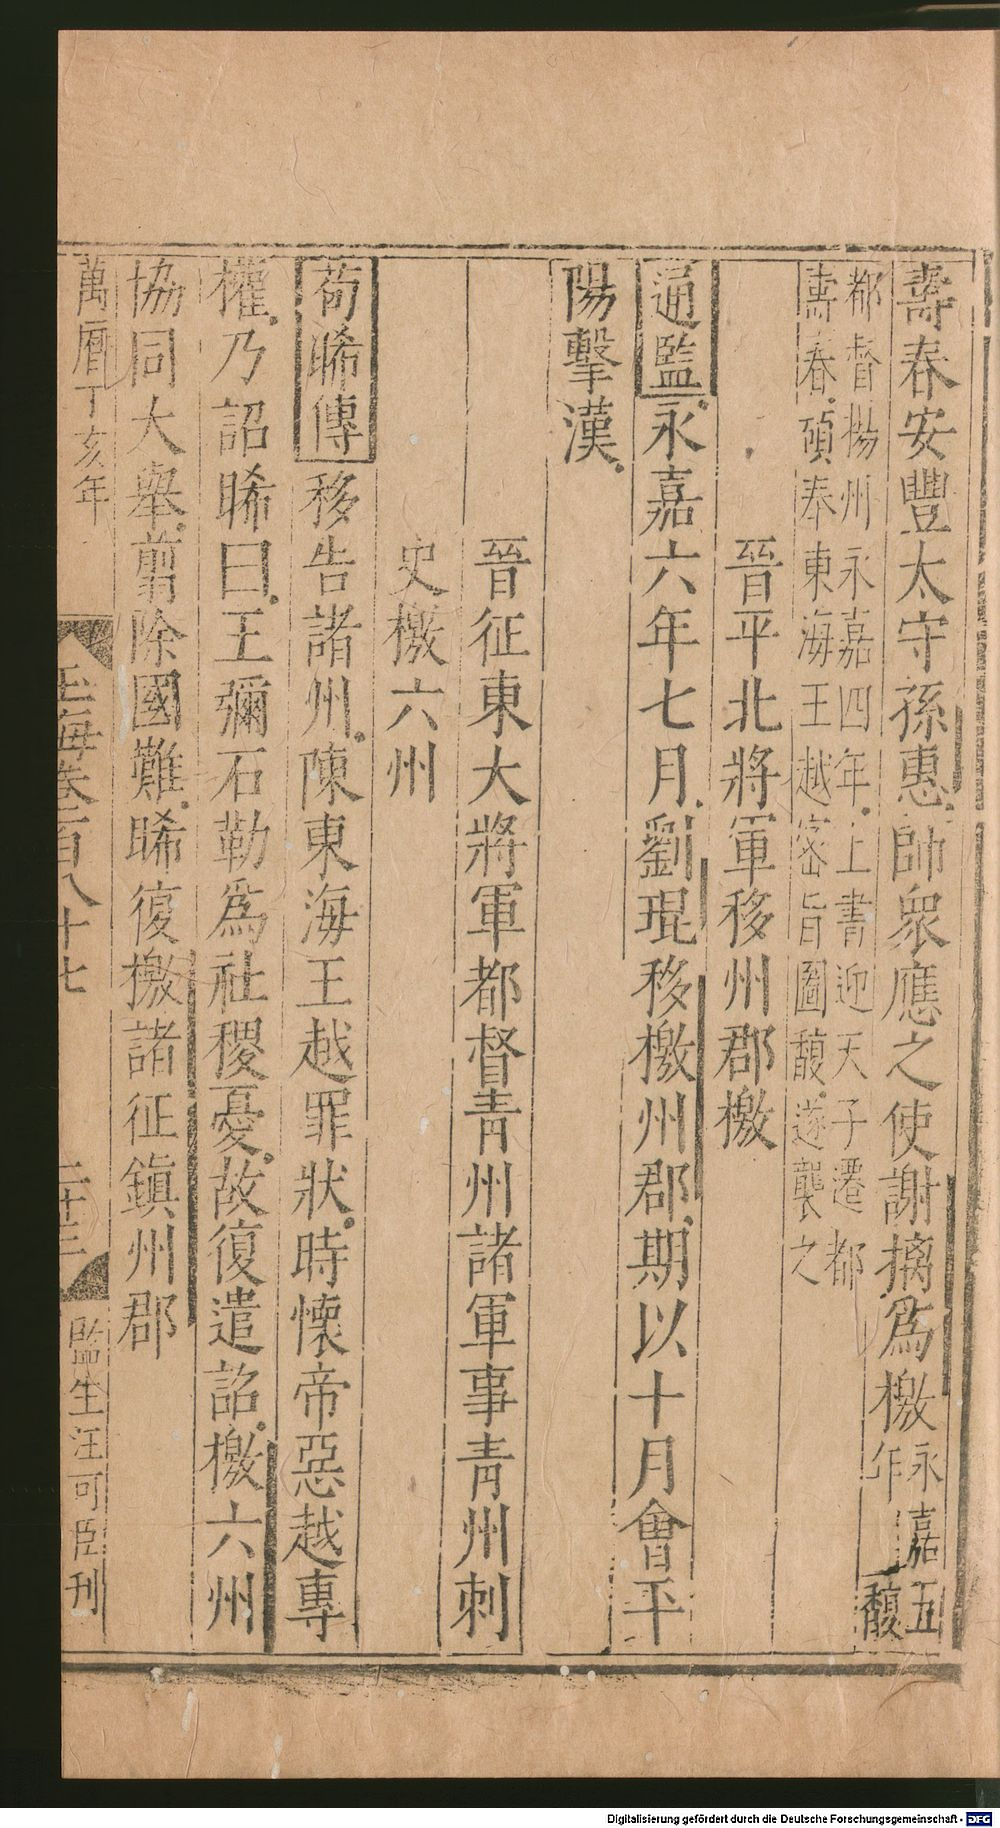 壽春安豐太守孫惠帥衆應之使謝摛爲檄永嘉五
作 馥
都督揚州永嘉四年上書迎天子遷都
壽春碩奉東海王越密旨圖馥遂襲之
晉平北將軍移州郡檄
通監永嘉六年七月劉琨移檄州郡期以十月會平
陽擊漢
晉征東大將軍都督青州諸軍事青州刺
史檄六州
荀晞傳移告諸州陳東海王越罪狀時懷帝惡越專
權乃詔晞曰王彌石勒爲社稷憂故復遣詔檄六州
協同大舉翦除國難晞復檄諸征鎮州郡
萬曆丁亥年 玉海卷二百八十七 二十三 監生汪可臣刊
Digitalisierung gefördert durch die Deutsche Forschungsgemeinschaft - DFG